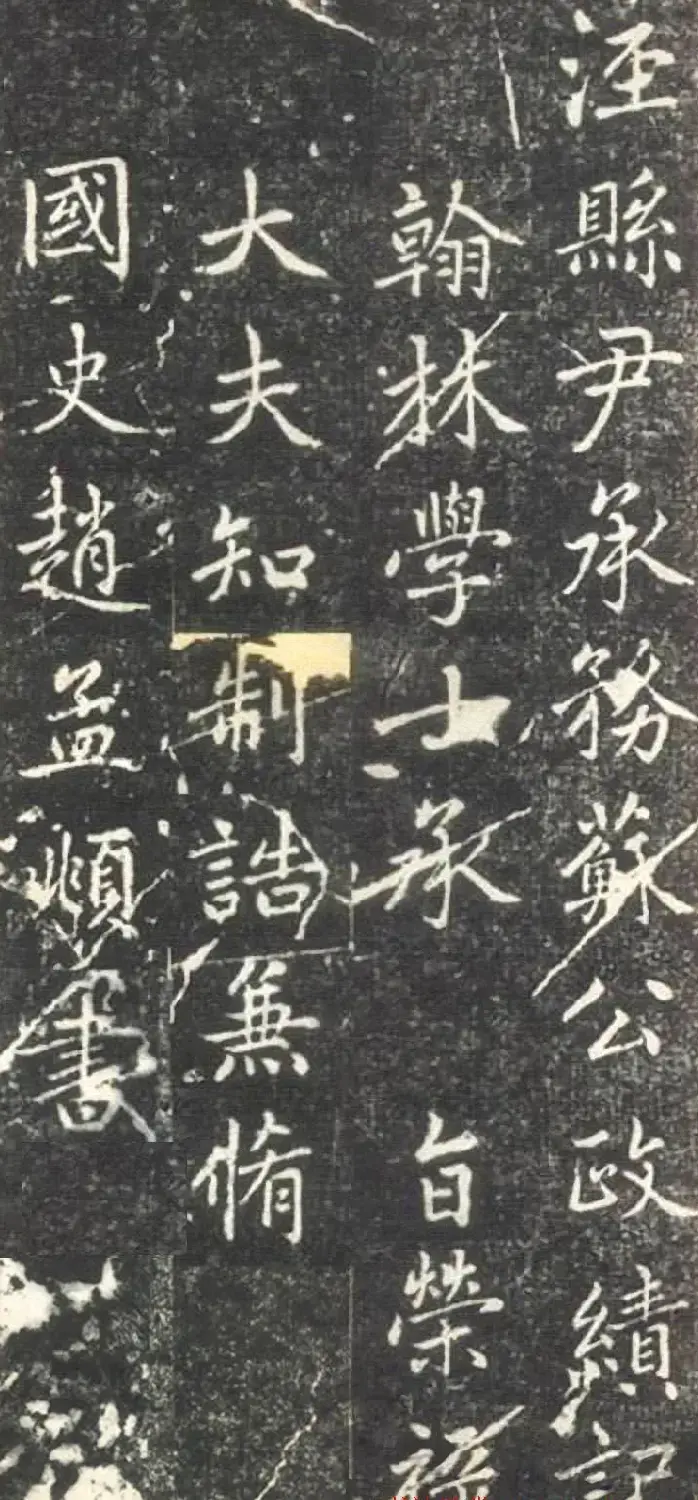 涇縣尹承務蘇公政績記
翰林學士承　旨榮祿
大夫知制誥兼脩
國史趙孟頫書